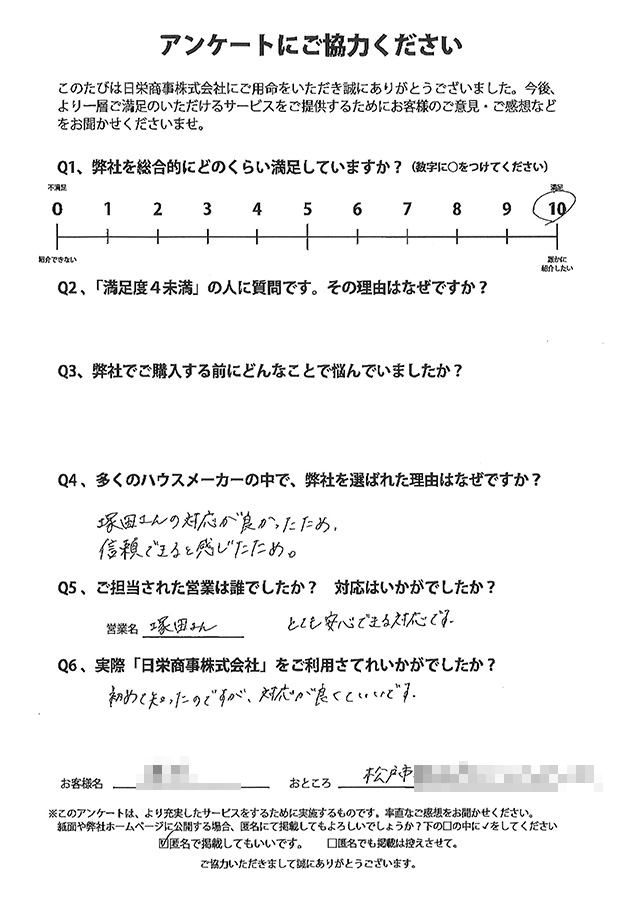 アンケートにご協力ください
このたびは日栄商事株式会社にご用命をいただき誠にありがとうございました。今後、
より一層ご満足のいただけるサービスをご提供するためにお客様のご意見・ご感想など
をお聞かせくださいませ。
Q1、弊社を総合的にどのくらい満足していますか？（数字に○をつけてください）
不満足 満足
0 1 2 3 4 5 6 7 8 9 10
紹介できない 誰かに
紹介したい
Q2、「満足度４未満」の人に質問です。その理由はなぜですか？
Q3、弊社でご購入する前にどんなことで悩んでいましたか？
Q4、多くのハウスメーカーの中で、弊社を選ばれた理由はなぜですか？
塚田さんの対応が良かったため、
信頼できると感じたため。
Q5、ご担当された営業は誰でしたか？　対応はいかがでしたか？
営業名 塚田さん とても安心できる対応です。
Q6、実際「日栄商事株式会社」をご利用さてれいかがでしたか？
初めて知ったのですが、対応が良くていいです。
お客様名 おところ 松戸市
※このアンケートは、より充実したサービスをするために実施するものです。率直なご感想をお聞かせください。
紙面や弊社ホームページに公開する場合、匿名にて掲載してもよろしいでしょうか？下の□の中に✓をしてください
☑匿名で掲載してもいいです。　□匿名でも掲載は控えさせて。
ご協力いただきまして誠にありがとうございます。